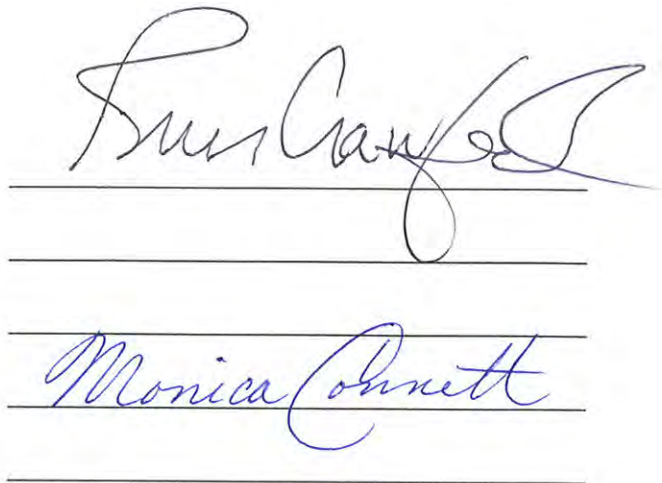 Crawford
Monica Connett